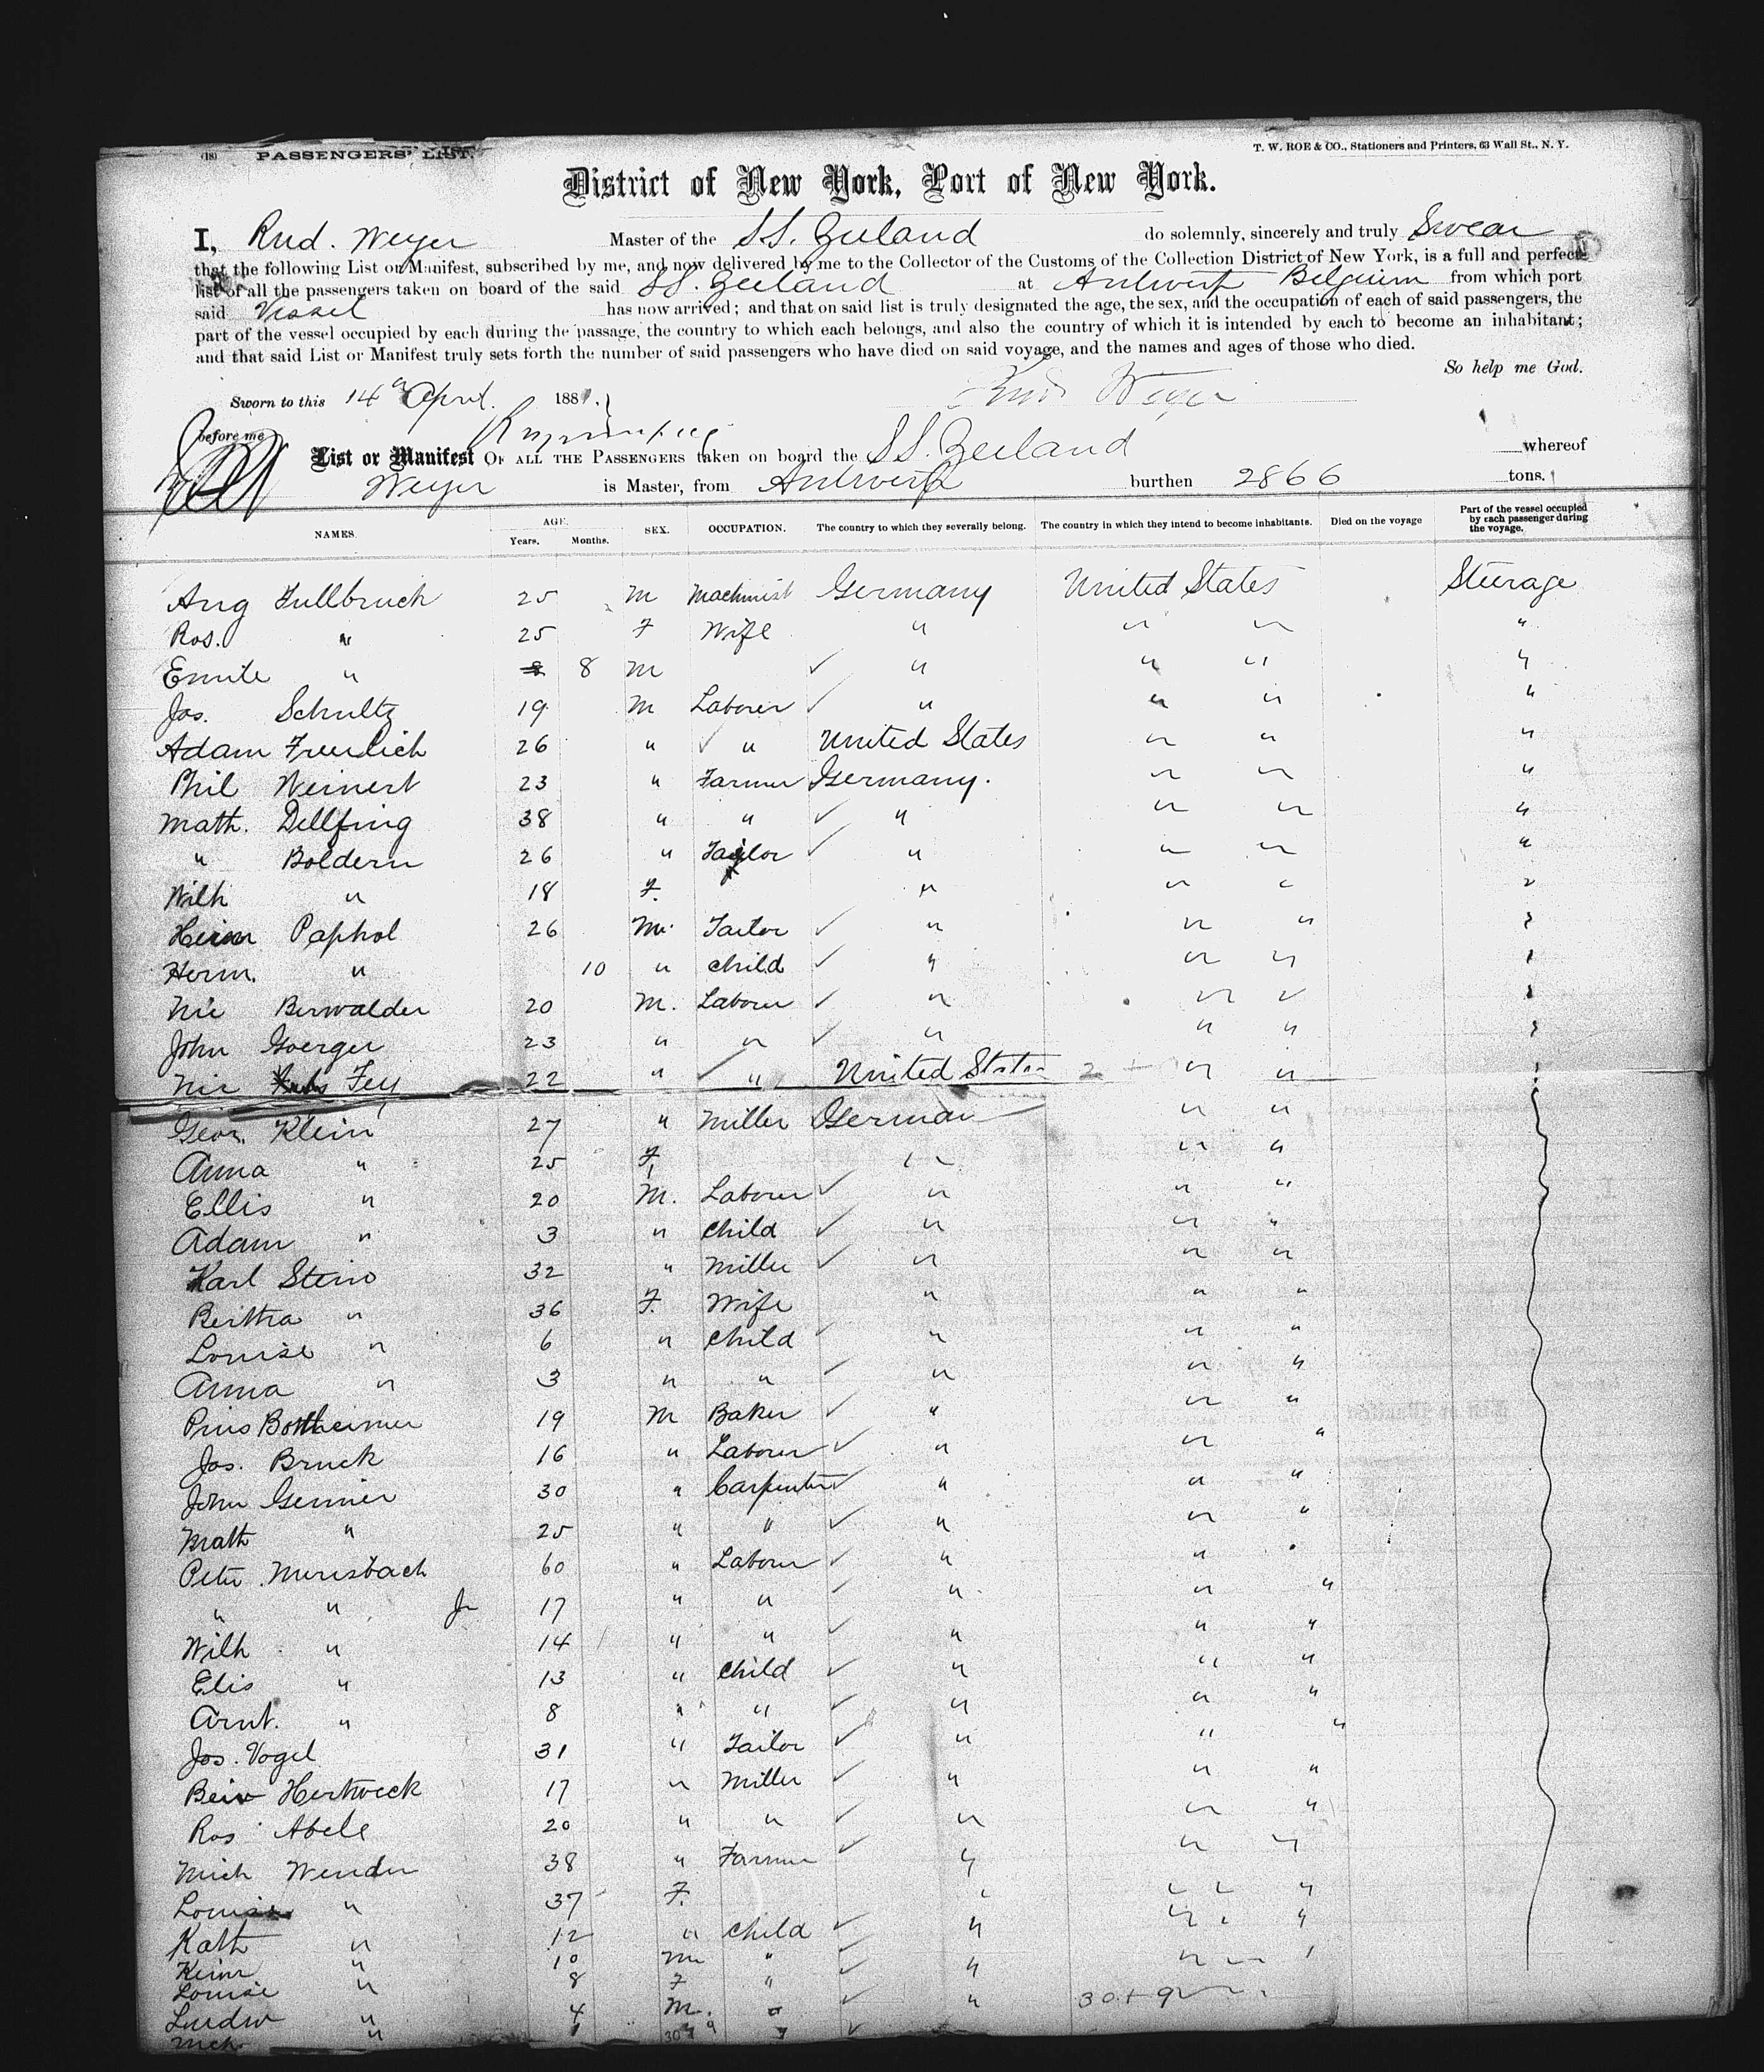 (18) PASSENGERS' LIST.
T. W. ROE & CO., Stationers and Printers, 63 Wall St., N. Y.
District of New York, Port of New York.
I, Rud. Weyer Master of the SS. Zeeland do solemnly, sincerely and truly Swear
that the following List or Manifest, subscribed by me, and now delivered by me to the Collector of the Customs of the Collection District of New York, is a full and perfect
list of all the passengers taken on board of the said SS. Zeeland at Antwerp Belgium from which port
said Vessel has now arrived; and that on said list is truly designated the age, the sex, and the occupation of each of said passengers, the
part of the vessel occupied by each during the passage, the country to which each belongs, and also the country of which it is intended by each to become an inhabitant;
and that said List or Manifest truly sets forth the number of said passengers who have died on said voyage, and the names and ages of those who died.
So help me God.
Sworn to this 14th April. 1881.
Rud Weyer
before me
List or Manifest OF ALL THE PASSENGERS taken on board the SS. Zeeland whereof
Weyer is Master, from Antwerp burthen 2866 tons.
NAMES. AGE. Years. Months. SEX. OCCUPATION. The country to which they severally belong. The country in which they intend to become inhabitants. Died on the voyage Part of the vessel occupied by each passenger during the voyage.
Aug Fullbruch 25 M Machinist Germany United States Steerage
Ros. " 25 F Wife " " " "
Emile " 8 M " " " "
Jos. Schultz 19 M Laborer " " " "
Adam Freulich 26 " " United States " " "
Phil Weinert 23 " Farmer Germany. " " "
Math. Dellfing 38 " " " " " "
" Boldern 26 " Tailor " " " "
Wilh " 18 F. " " " "
Heinr Paphol 26 M. Tailor " " " "
Herm. " 10 " Child " " " "
Nic Berwalder 20 M. Laborer " " " "
John Goerger 23 " " " " " "
Nic Fey 22 " " United States " "
Geor. Klein 27 " Miller German " "
Anna " 25 F " " "
Ellis " 20 M. Laborer " " "
Adam " 3 " Child " " "
Karl Stein 32 " Miller " " "
Bertha " 36 F. Wife " " "
Louise " 6 " Child " " "
Anna " 3 " " " " "
Pius Bortheimer 19 M Baker " " "
Jos. Bruck 16 " Laborer " " "
John Genner 30 " Carpenter " " "
Math " 25 " " " " "
Peter Merisbach 60 " Laborer " "
" " Jr 17 " " " " "
Wilh " 14 " " " " "
Elis " 13 " Child " " "
Arnt. " 8 " " " " "
Jos. Vogel 31 " Tailor " " "
Hertweck 17 " Miller " " "
Ros Abele 20 " " " " "
Mich Wender 38 " Farmer " " "
Louise " 37 F. " " "
Kath " 12 " Child " " "
Heinr " 10 M " " " "
Louise " 8 F " "
Ludw " 4 M. " " 30+9
Mch "